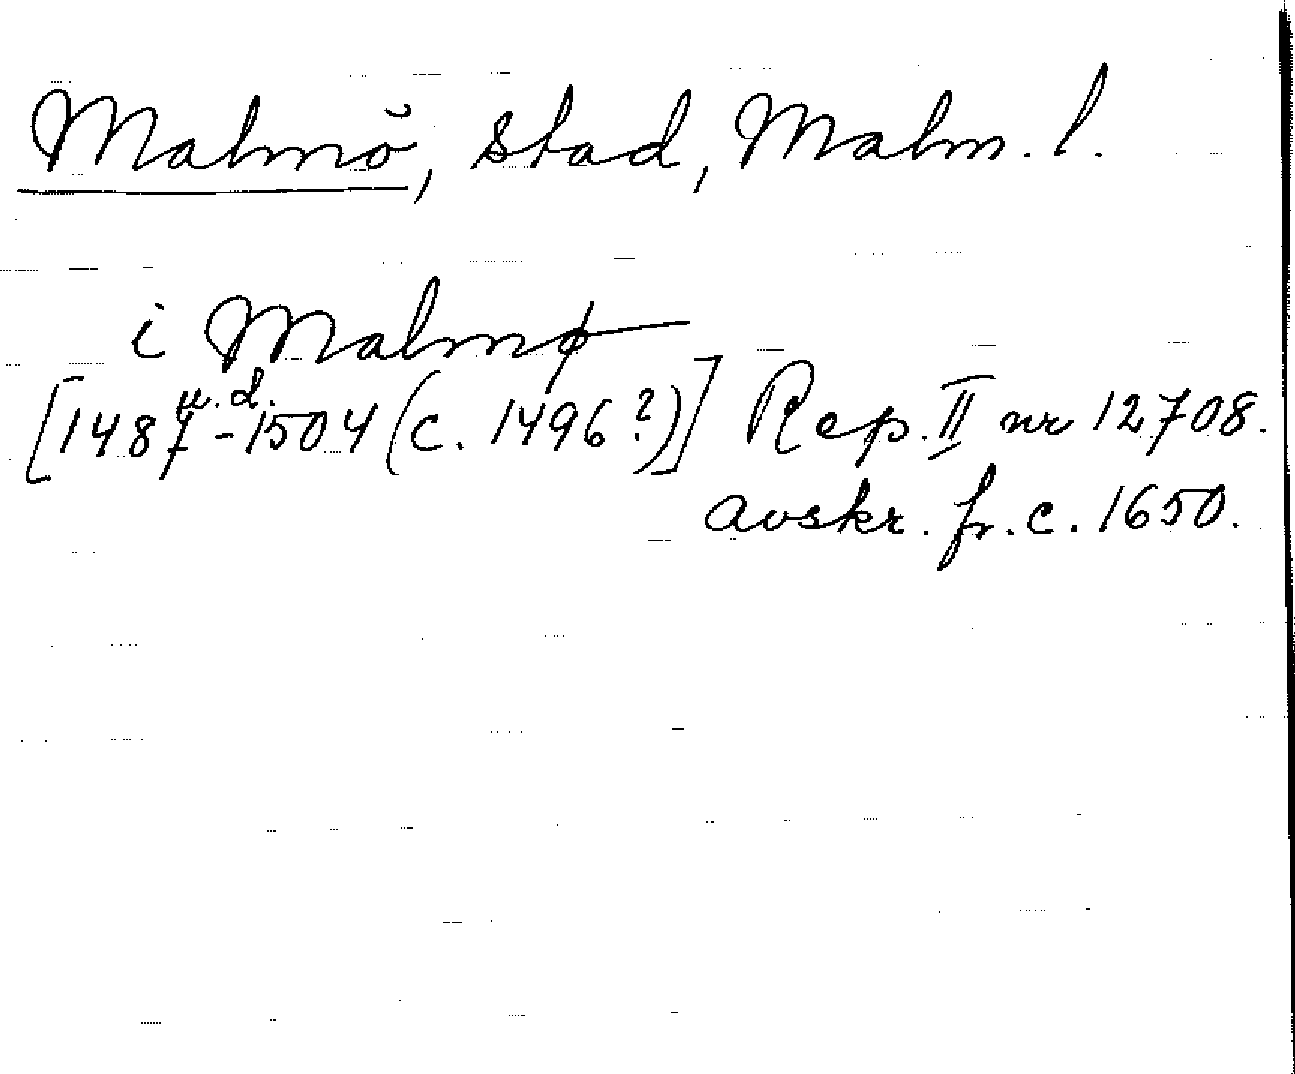 Malmö, stad, Malm. l.
i Malmø
u. d.
[1487-1504 (c. 1496?)] Rep. II nr 12708.
avskr. fr. c. 1650.